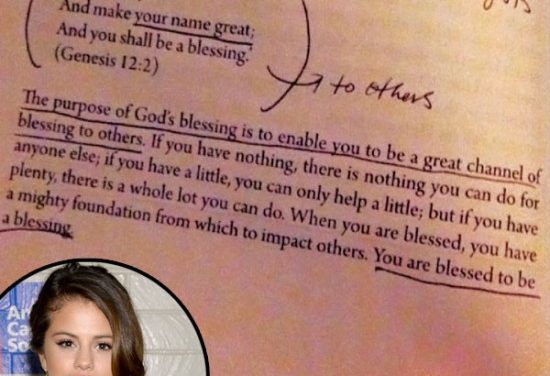 And make your name great;
And you shall be a blessing.
(Genesis 12:2)
to others
The purpose of God's blessing is to enable you to be a great channel of
blessing to others. If you have nothing, there is nothing you can do for
anyone else; if you have a little, you can only help a little; but if you have
plenty, there is a whole lot you can do. When you are blessed, you have
a mighty foundation from which to impact others. You are blessed to be
a blessing.
Ca
So